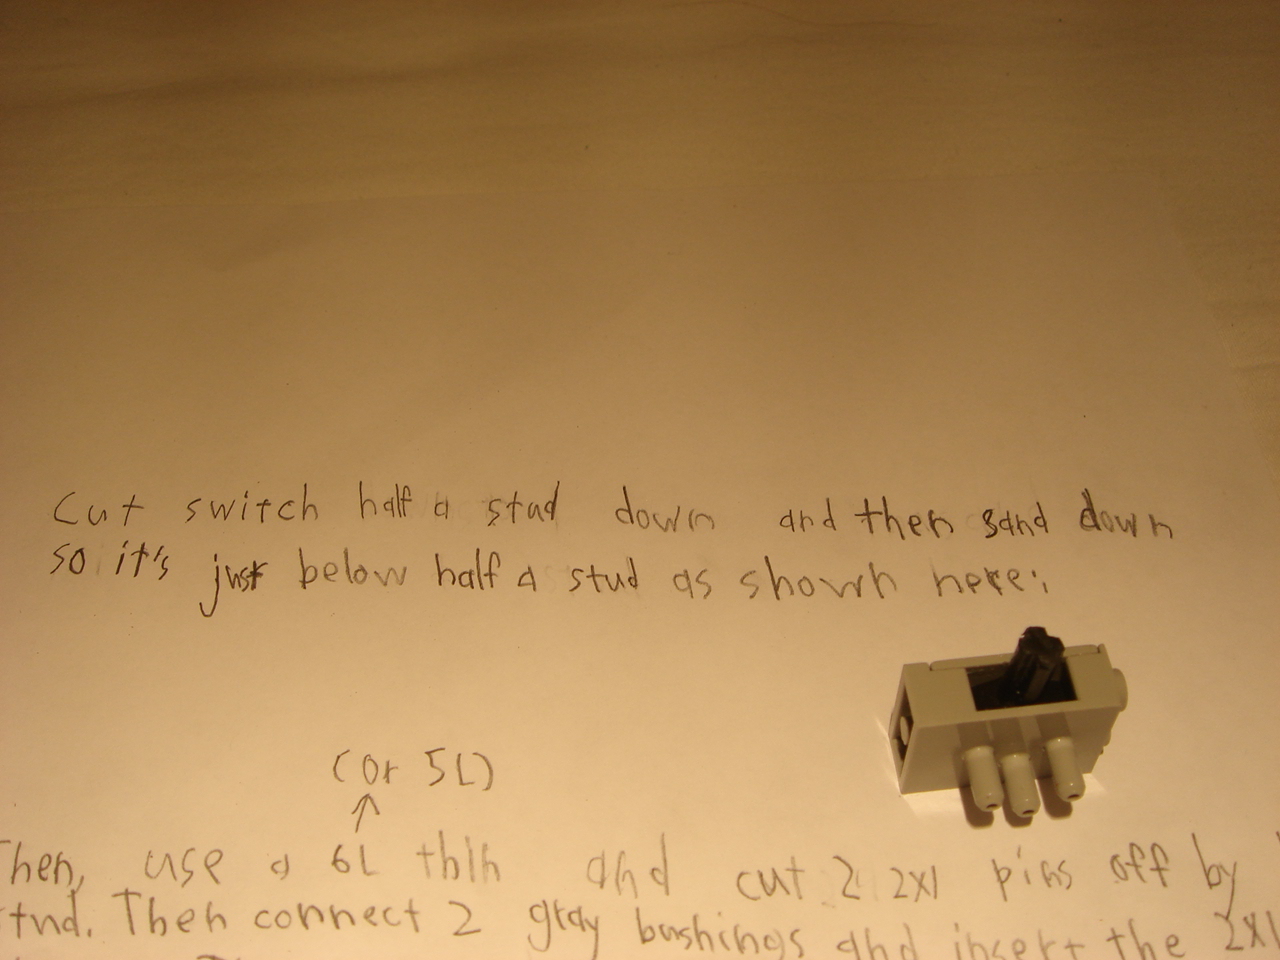 Cut switch half a stud down and then sand down
so it's just below half a stud as shown here:
(or 5L)
Then, use a 6L thin and cut 2 2x1 pins off by
stud. Then connect 2 gray bushings and insert the 2x1